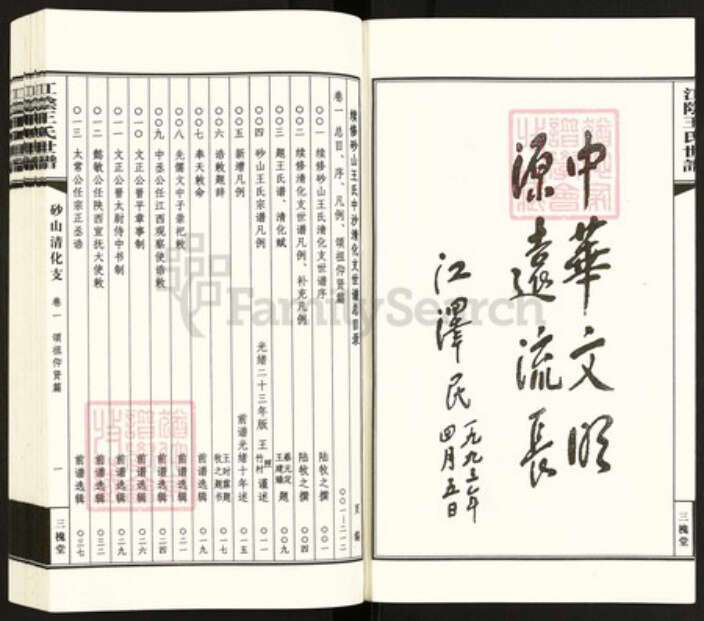 江陰王氏世譜
三槐堂
中華文明
源遠流長
江澤民
一九九三年
四月五日
续修砂山王氏中沙清化支世谱总目录
卷一 总目、序、凡例、颂祖仰贤篇 〇〇一—二一二 页编
〇〇一 续修砂山王氏清化支世谱序 陆牧之撰 〇〇一
〇〇二 续修清化支世谱凡例、补充凡例 陆牧之撰 〇〇四
〇〇三 题王氏谱、清化赋 蔡元定 王建臻 题 〇〇九
〇〇四 砂山王氏宗谱凡例 光绪二十三年版 王 竹村 谨述 〇一一
〇〇五 新增凡例 前谱光绪十年述 〇一五
〇〇六 诰敕题辞 王时霖题 牧之题书 〇一七
〇〇七 奉天敕命 前谱选辑 〇一九
〇〇八 先儒文中子崇祀敕 前谱选辑 〇二一
〇〇九 中丞公任江西观察使诰敕 前谱选辑 〇二四
〇一〇 文正公晋平章事制 前谱选辑 〇二六
〇一一 文正公晋太尉侍中书制 前谱选辑 〇二九
〇一二 懿敏公任陕西宣抚大使敕 前谱选辑 〇三二
〇一三 太常公任宗正丞诰 前谱选辑 〇三七
江陰王氏世譜
砂山清化支 卷一 颂祖仰贤篇
一
三槐堂
FamilySearch